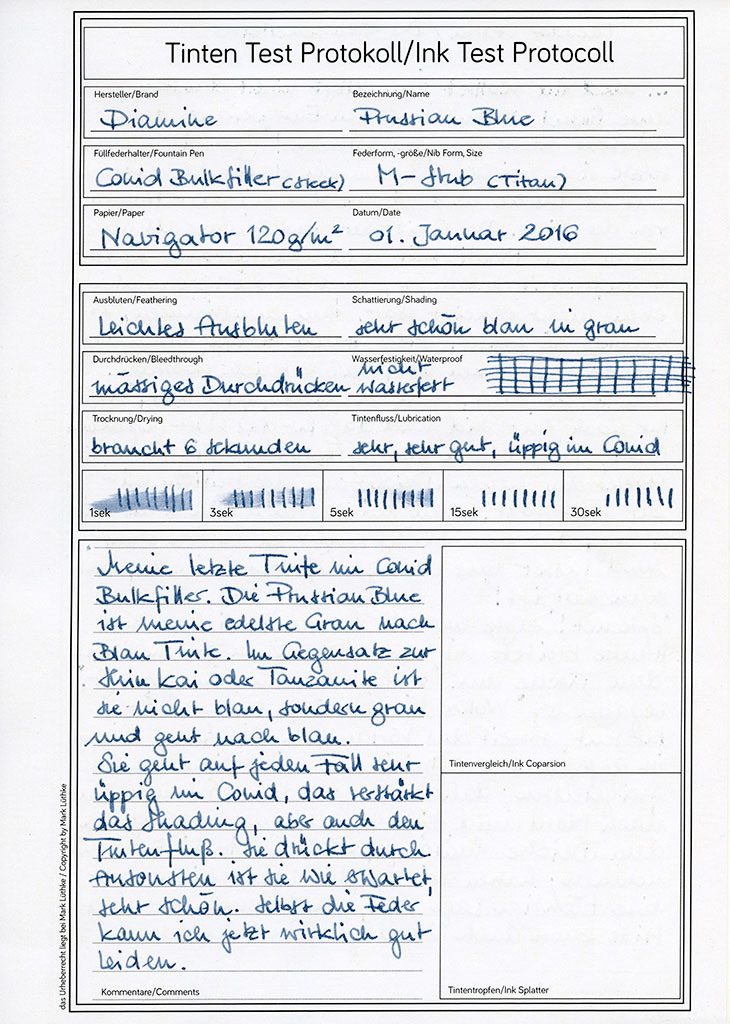 Tinten Test Protokoll/Ink Test Protocoll
Hersteller/Brand
Diamine
Bezeichnung/Name
Prussian Blue
Füllfederhalter/Fountain Pen
Conid Bulkfiller (Steck)
Federform, -größe/Nib Form, Size
M-Stub (Titan)
Papier/Paper
Navigator 120g/m²
Datum/Date
01. Januar 2016
Ausbluten/Feathering
Leichtes Ausbluten
Schattierung/Shading
sehr schön blau in grau
Durchdrücken/Bleedthrough
mässiges Durchdrücken
Wasserfestigkeit/Waterproof
nicht
wasserfest
Trocknung/Drying
braucht 6 Sekunden
Tintenfluss/Lubrication
sehr, sehr gut, üppig im Conid
1sek
3sek
5sek
15sek
30sek
Meine letzte Tinte im Conid
Bulkfiller. Die Prussian Blue
ist meine edelste Grau nach
Blau Tinte. Im Gegensatz zur
Shin Kai oder Tanzanite ist
sie nicht blau, sondern grau
und geht nach blau.
Sie geht auf jeden Fall sehr
üppig im Conid, das verstärkt
das Shading, aber auch den
Tintenfluß. Sie drückt durch.
Ansonsten ist sie wie erwartet,
sehr schön. Selbst die Feder
kann ich jetzt wirklich gut
leiden.
Kommentare/Comments
Tintenvergleich/Ink Coparsion
Tintentropfen/Ink Splatter
das Urheberrecht liegt bei Mark Lüthke / Copyright by Mark Lüthke